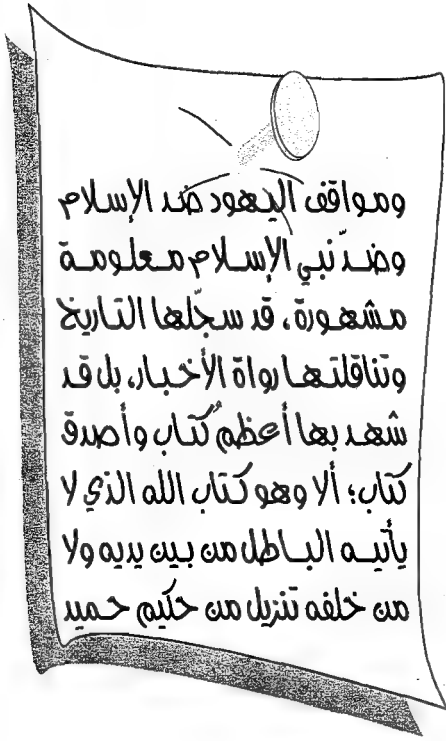 ومواقف اليهود ضد الإسلام
وضدّ نبي الإسلام معلومة
مشهورة، قد سجّلها التاريخ
وتناقلتها رواة الأخبار، بل قد
شهد بها أعظم كُتاب وأصدق
كتاب؛ ألا وهو كتاب الله الذي لا
يأتيه الباطل من بين يديه ولا
من خلفه تنزيل من حكيم حميد